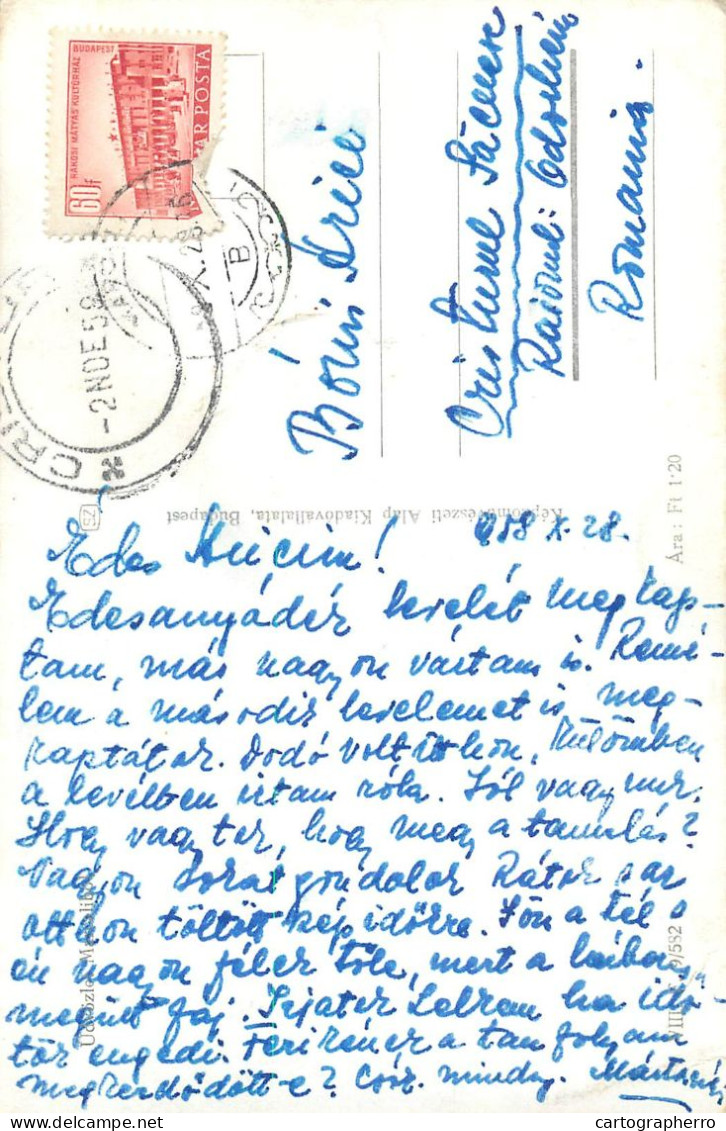 BUDAPEST
RÁKOSI MÁTYÁS KULTÚRHÁZ
60f
MAGYAR POSTA
B
-2NOE58
CRIS
Bőini Aricé
Cristurul Săcuesc
Raionul: Odorheiu
Romania.
Képzőművészeti Alap Kiadóvállalata, Budapest
SZ
Ára: Ft 1·20
958 X. 28.
Édes
Édesanyádék levelét megkap-
tam, már nagyon vártam is. Remé-
lem a második levelemet is meg-
kaptátok. Dodó volt itthon, külömben
a levélben írtam róla. Jól vagyunk.
Hogy vagytok, hogy megy a tanulás?
Nagyon sokat gondolok Rátok s az
otthon töltött szép időkre. Jön a tél s
én nagyon félek tőle, mert a lábam
megint fáj. Írjatok Lelkem ha idő-
tök engedi. Ferikének a tanfolyam
megkezdődött-e? Csók. mindny. Mártanéni
Üdvözlet
cartographerro